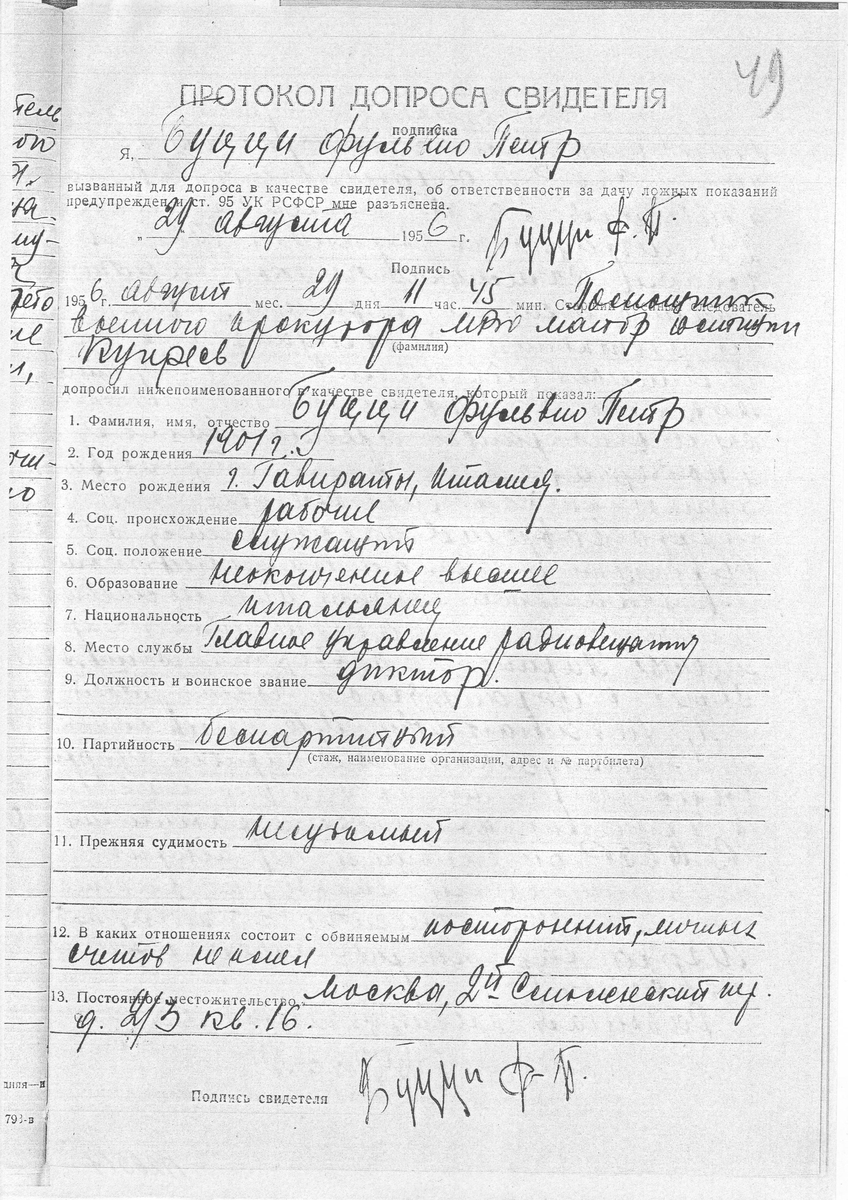 49
ПРОТОКОЛ ДОПРОСА СВИДЕТЕЛЯ
подписка
Я, Буцци Фульвио Петр
вызванный для допроса в качестве свидетеля, об ответственности за дачу ложных показаний
предупрежден и ст. 95 УК РСФСР мне разъяснена.
„ 29 августа 1956 г. Буцци Ф. П.
Подпись
1956 г. август мес. 29 дня 11 час. 45 мин. Старший военный следователь Помощник
военного прокурора МВО майор юстиции
(фамилия)
Купрев
допросил нижепоименованного в качестве свидетеля, который показал:
1. Фамилия, имя, отчество Буцци Фульвио Петр
2. Год рождения 1901 г.
3. Место рождения г. Гавираты, Италия.
4. Соц. происхождение рабочие
5. Соц. положение служащий
6. Образование неоконченное высшее
7. Национальность итальянец
8. Место службы Главное управление радиовещания
9. Должность и воинское звание диктор.
10. Партийность беспартийный
(стаж, наименование организации, адрес и № партбилета)
11. Прежняя судимость несудимый
12. В каких отношениях состоит с обвиняемым посторонний, личных
счетов не имел
13. Постоянное местожительство Москва, 2й Смоленский пер.
д. 2/3 кв. 16.
Подпись свидетеля Буцци Ф. П.
793-в